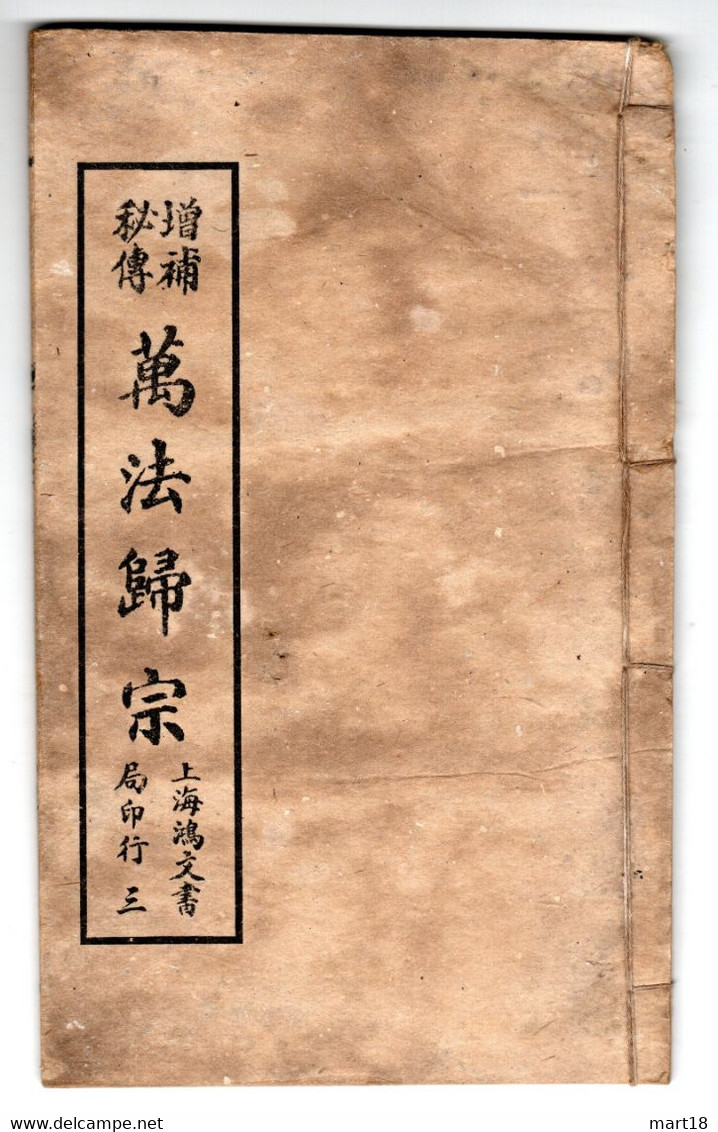 增補
秘傳
萬法歸宗
上海鴻文書
局印行 三
delcampe.net
mart18